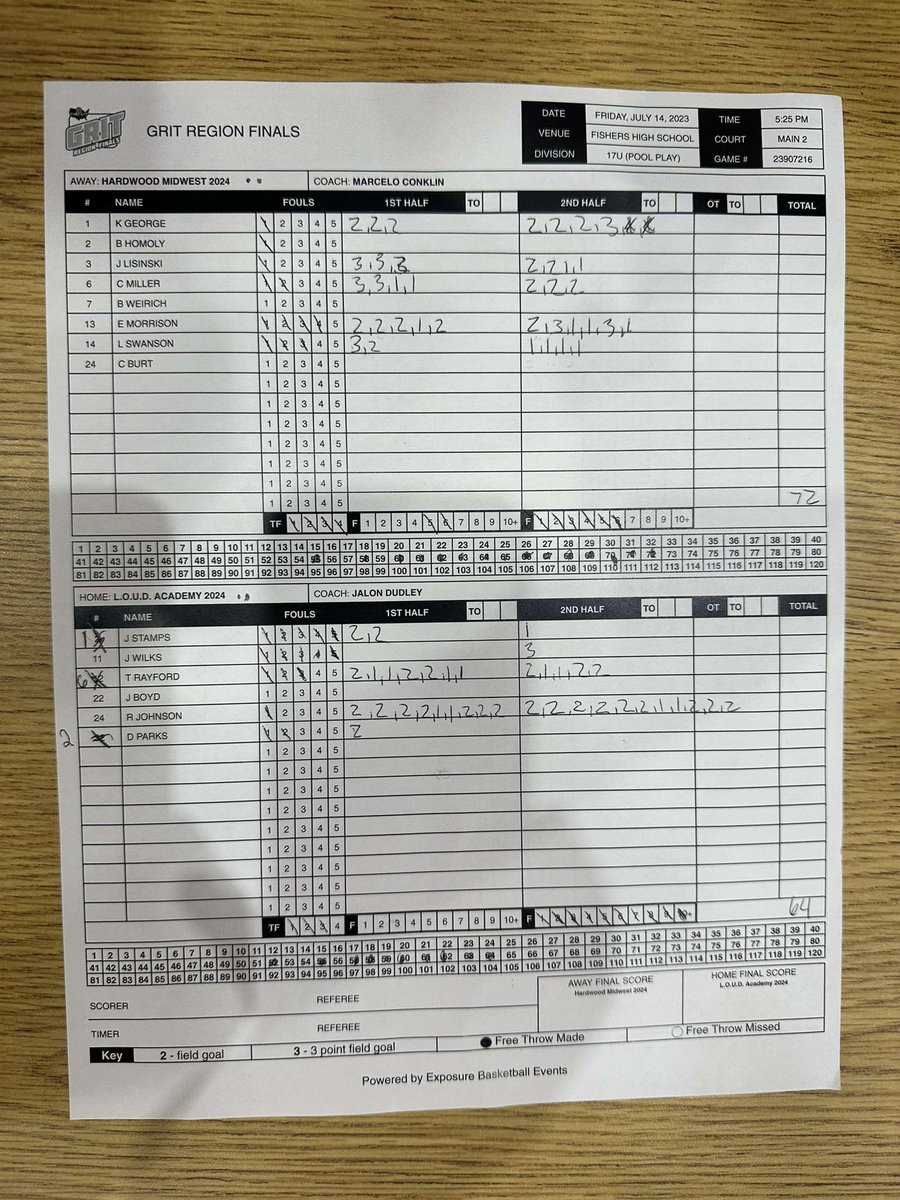 GRIT
REGION FINALS
GRIT REGION FINALS
DATE FRIDAY, JULY 14, 2023 TIME 5:25 PM
VENUE FISHERS HIGH SCHOOL COURT MAIN 2
DIVISION 17U (POOL PLAY) GAME # 23907216
AWAY: HARDWOOD MIDWEST 2024 COACH: MARCELO CONKLIN
# NAME FOULS 1ST HALF TO 2ND HALF TO OT TO TOTAL
1 K GEORGE 1 2 3 4 5 2,2,2 2,2,2,3
2 B HOMOLY 1 2 3 4 5
3 J LISINSKI 1 2 3 4 5 3,3,3 2,2,1,1
6 C MILLER 1 2 3 4 5 3,3,1,1 2,2,2
7 B WEIRICH 1 2 3 4 5
13 E MORRISON 1 2 3 4 5 2,2,2,1,2 2,3,1,1,3,1
14 L SWANSON 1 2 3 4 5 3,2 1,1,1,1
24 C BURT 1 2 3 4 5
1 2 3 4 5
1 2 3 4 5
1 2 3 4 5
1 2 3 4 5
1 2 3 4 5
1 2 3 4 5
1 2 3 4 5 72
TF 1 2 3 4 F 1 2 3 4 5 6 7 8 9 10+ F 1 2 3 4 5 6 7 8 9 10+
1 2 3 4 5 6 7 8 9 10 11 12 13 14 15 16 17 18 19 20 21 22 23 24 25 26 27 28 29 30 31 32 33 34 35 36 37 38 39 40
41 42 43 44 45 46 47 48 49 50 51 52 53 54 55 56 57 58 59 60 61 62 63 64 65 66 67 68 69 70 71 72 73 74 75 76 77 78 79 80
81 82 83 84 85 86 87 88 89 90 91 92 93 94 95 96 97 98 99 100 101 102 103 104 105 106 107 108 109 110 111 112 113 114 115 116 117 118 119 120
HOME: L.O.U.D. ACADEMY 2024 COACH: JALON DUDLEY
# NAME FOULS 1ST HALF TO 2ND HALF TO OT TO TOTAL
1 J STAMPS 1 2 3 4 5 2,2 1
11 J WILKS 1 2 3 4 5 3
6 T RAYFORD 1 2 3 4 5 2,1,1,2,2,1,1 2,1,1,2,2
22 J BOYD 1 2 3 4 5
24 R JOHNSON 1 2 3 4 5 2,2,2,2,1,1,2,2,2 2,2,2,2,2,2,1,1,2,2,2
2 D PARKS 1 2 3 4 5 2
1 2 3 4 5
1 2 3 4 5
1 2 3 4 5
1 2 3 4 5
1 2 3 4 5
1 2 3 4 5
1 2 3 4 5
1 2 3 4 5
1 2 3 4 5 64
TF 1 2 3 4 F 1 2 3 4 5 6 7 8 9 10+ F 1 2 3 4 5 6 7 8 9 10+
1 2 3 4 5 6 7 8 9 10 11 12 13 14 15 16 17 18 19 20 21 22 23 24 25 26 27 28 29 30 31 32 33 34 35 36 37 38 39 40
41 42 43 44 45 46 47 48 49 50 51 52 53 54 55 56 57 58 59 60 61 62 63 64 65 66 67 68 69 70 71 72 73 74 75 76 77 78 79 80
81 82 83 84 85 86 87 88 89 90 91 92 93 94 95 96 97 98 99 100 101 102 103 104 105 106 107 108 109 110 111 112 113 114 115 116 117 118 119 120
SCORER REFEREE AWAY FINAL SCORE HOME FINAL SCORE
Hardwood Midwest 2024 L.O.U.D. Academy 2024
TIMER REFEREE
Key 2 - field goal 3 - 3 point field goal Free Throw Made Free Throw Missed
Powered by Exposure Basketball Events